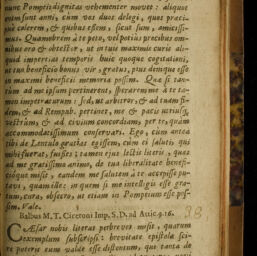 nunc Pompeii dignitas vehementer movet: aliquot
enim sunt anni, cum vos duos delegi, quos præci-
puè colerem, & quibus essem, sicut sum, amicissi-
mus. Quamobrem à te peto, vel potius precibus om-
nibus oro & obtestor, ut in tuis maximis curis ali-
quid impertias temporis huic quoque cogitationi,
ut tuo beneficio bonus vir, gratus, pius denique esse
in maximi beneficii memoria possim. Quæ si tan-
tùm ad me ipsum pertinerent, sperarem me à te ta-
men impetraturum: sed, ut arbitror, & ad tuam fi-
dem, & ad Rempub. pertinet, me & pacis utriusq;
vestrûm, & ad civium concordiam, per te, quàm
accommodatissimum conservari. Ego, cùm antea
tibi de Lentulo gratias egissem, cùm ei saluti, qui
mihi fuerat, fuisses; tamen ejus lectis literis, quas
ad me gratissimo animo, de tua liberalitate benefi-
cioque misit, eandem me salutem à te accepisse pu-
tavi, quam ille: in quem si me intelligis esse gra-
tum, cura, obsecro, ut etiam in Pompeium esse pos-
sim. Vale.
Balbus M. T. Ciceroni Imp. S. D. ad Attic. 9. 16. 28
CÆsar nobis literas perbreves misit, quarum
exemplum subscripsi: brevitate epistolæ sci-
re poteris eum valde esse distentum, qui tanta de